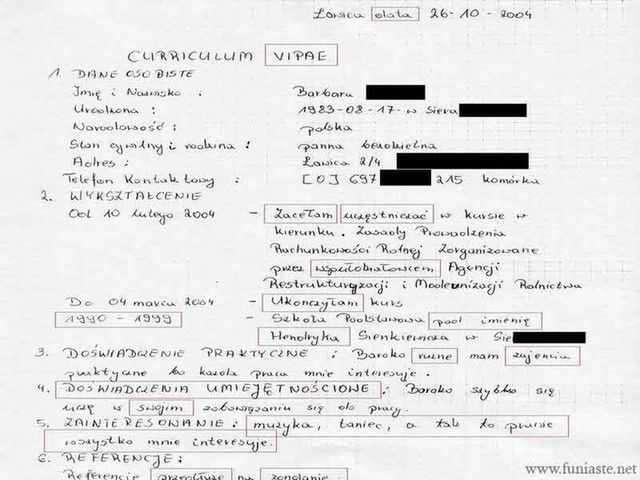 Łowica data 26-10-2004
CURRICULUM VIPAE
1. DANE OSOBISTE
Imię i Nazwisko : Barbara
Urodzona : 1983-08-17- w Siera
Narodowość : polska
Stan cywilny i rodzina : panna bezdzietna
Adres : Łowica 2/4
Telefon Kontaktowy : [0] 697 215 komórka
2. WYKSZTAŁCENIE
Od 10 lutego 2004 - Zacełam uczęstniczać w kursie w
kierunku. Zasady Prowadzenia
Rachunkowości Rolnej Zorganizowane
przez współobiatowcem Agencji
Restrukturyzacji i Modernizacji Rolnictwa
Do 04 marca 2004 - Ukonczyłam kurs
1990 - 1999 - Szkoła Podstawowa pod imienią
Hendryka Sienkiewicza w Sie
3. DOŚWIADCZENIE PRAKTYCZNE : Bardzo rużne mam zajęncia
praktyczne bo każda praca mnie interesuje.
4. DOŚWIADCZENIA UMIEJĘTNOŚCIOWE : Bardzo szybko się
uczę w swojim zobowązaniu się do pracy.
5. ZAINTERESOWANIE : muzyka, taniec, a tak to prawie
wszystko mnie interesuje.
6. REFERENCJE :
Referencje na
www.funiaste.net